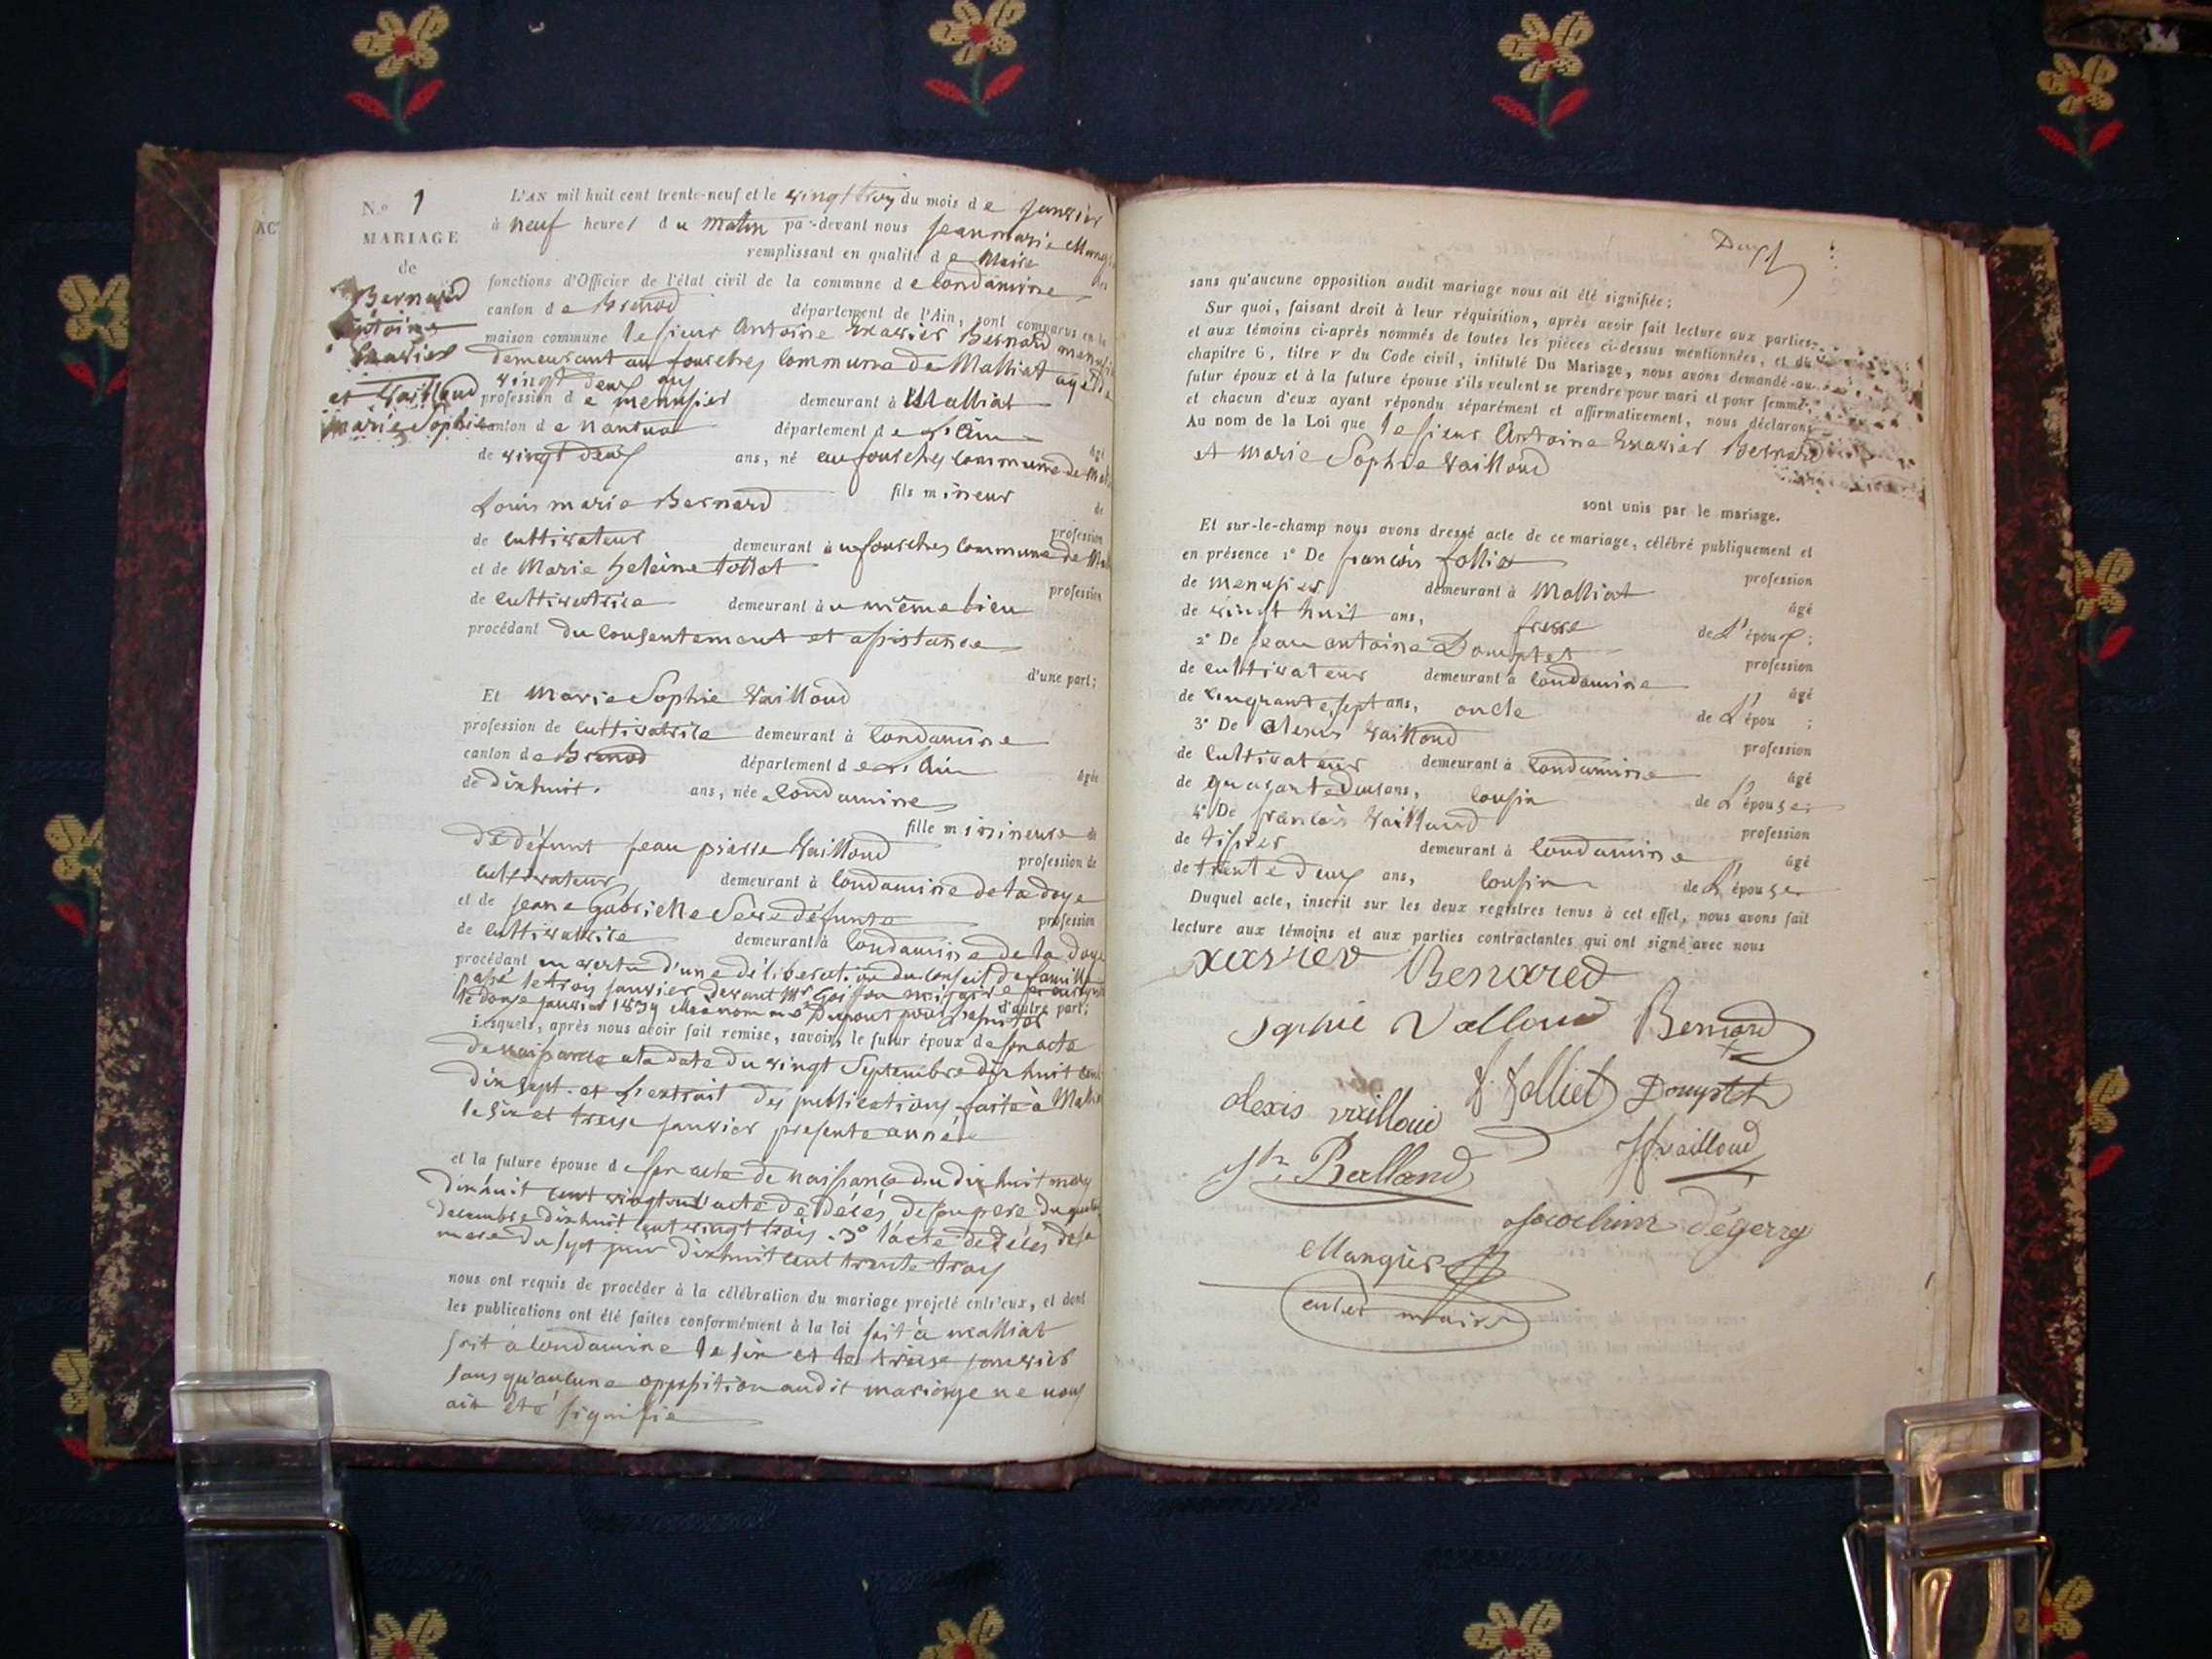 AC
N.° 1
MARIAGE
de
Bernard
Antoine
Exavier
et Vailloud
marie Sophie
L'AN mil huit cent trente-neuf et le vingt troy du mois de janvier
à neuf heures du matin par-devant nous jean marie Mang
remplissant en qualité de Maire
fonctions d'Officier de l'état civil de la commune de Condamine
canton de Brenod département de l'Ain, sont comparus en la
maison commune le sieur Antoine Exavier Bernard menusier
demeurant au fourches Commune de Malliat agé de
vingt deux ans
profession de menusier demeurant à Malliat
canton de nantua département de l'Ain âgé
de vingt deux ans, né au fourches commune de Mal
fils mineur de
Louis marie Bernard profession
de Cultivateur demeurant au fourches Commune de Mal
et de Marie heleine tollot profession
de Cultivatrice demeurant à u même lieu
procédant du Consentement et assistance
d'une part;
Et Marie Sophie Vailloud
profession de Cultivatrice demeurant à Condamine
canton de Brenod département de l'Ain âgée
de dix huit. ans, née a Condamine
fille minineure de
de défunt jean pierre Vailloud profession de
cultivateur demeurant à Condamine de la doye
et de jeane Gabrielle Seve défunte profession
de Cultivatrice demeurant à Condamine de la doye
procédant en vertu d'une déliberation du Conseil de famille
passé le troy janvier devant Mr
le douze janvier 1839
d'autre part;
Lesquels, après nous avoir fait remise, savoir, le futur époux de son acte
de naissance a la date du vingt Septembre dix huit cent
dix sept. et L'extrait des publications faite à Malliat
le six et treise janvier presente année
et la future épouse de son acte de naissance du dix huit may
dix huit cent vingt un l'acte de Décés de son pere du
decembre dix huit cent vingt trois . 3° l'acte de Décés de sa
mere du sept juin dix huit cent trente troy
nous ont requis de procéder à la célébration du mariage projeté entr'eux, et dont
les publications ont été faites conformément à la loi soit à malliat
soit à Condamine le six et le treise janvier
sans qu'aucune opposition audit mariage ne nous
ait été signifié
Deux
sans qu'aucune opposition audit mariage nous ait été signifiée;
Sur quoi, faisant droit à leur réquisition, après avoir fait lecture aux parties
et aux témoins ci-après nommés de toutes les pièces ci-dessus mentionnées, et du
chapitre 6, titre v du Code civil, intitulé Du Mariage, nous avons demandé au
futur époux et à la future épouse s'ils veulent se prendre pour mari et pour femme,
et chacun d'eux ayant répondu séparément et affirmativement, nous déclarons
Au nom de la Loi que le sieur Antoine Exavier Bernard
et Marie Sophie Vailloud
sont unis par le mariage.
Et sur-le-champ nous avons dressé acte de ce mariage, célébré publiquement et
en présence 1° De françois follie profession
de menusier demeurant à Malliat âgé
de vingt huit ans, frere de L'époux;
2° De jean antoine Douptet profession
de cultivateur demeurant à Condamine âgé
de Cinquante sept ans, oncle de L'épou ;
3° De Alexis Vailloud profession
de Cultivateur demeurant à Condamine âgé
de quarante deux ans, Cousin de L'épouse;
4° De françois Vailloud profession
de tissier demeurant à Condamine âgé
de trente deux ans, Cousin de L'épouse
Duquel acte, inscrit sur les deux registres tenus à cet effet, nous avons fait
lecture aux témoins et aux parties contractantes qui ont signé avec nous
xavier Benared
Sophie Valloud Bernard
alexis vailloud f. folliet Douptet
Balland ff vailloud
joachim dégerry
Mangier
maire